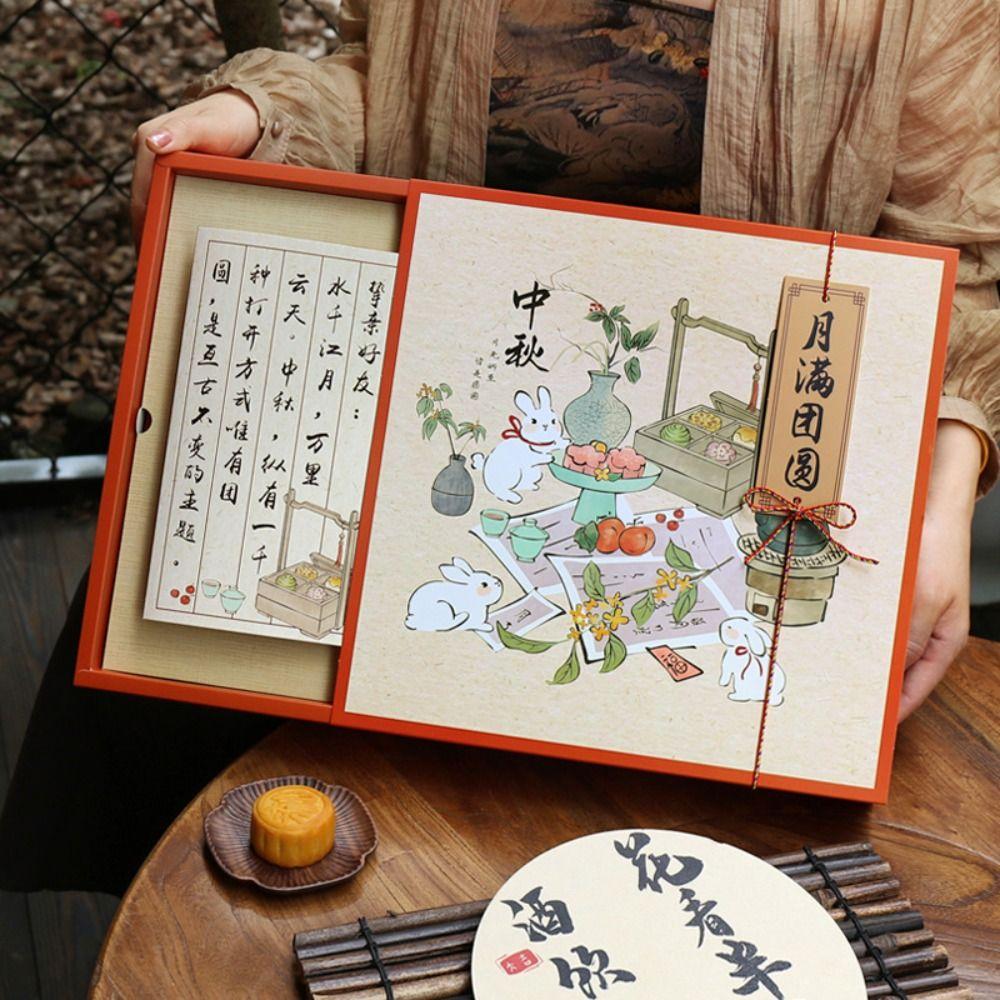 挚亲好友：
水千江月，万里
云天。中秋，纵有一千
种打开方式唯有团
圆，是亘古不变的主题。
中秋
月满团圆
福
花看半
酒饮